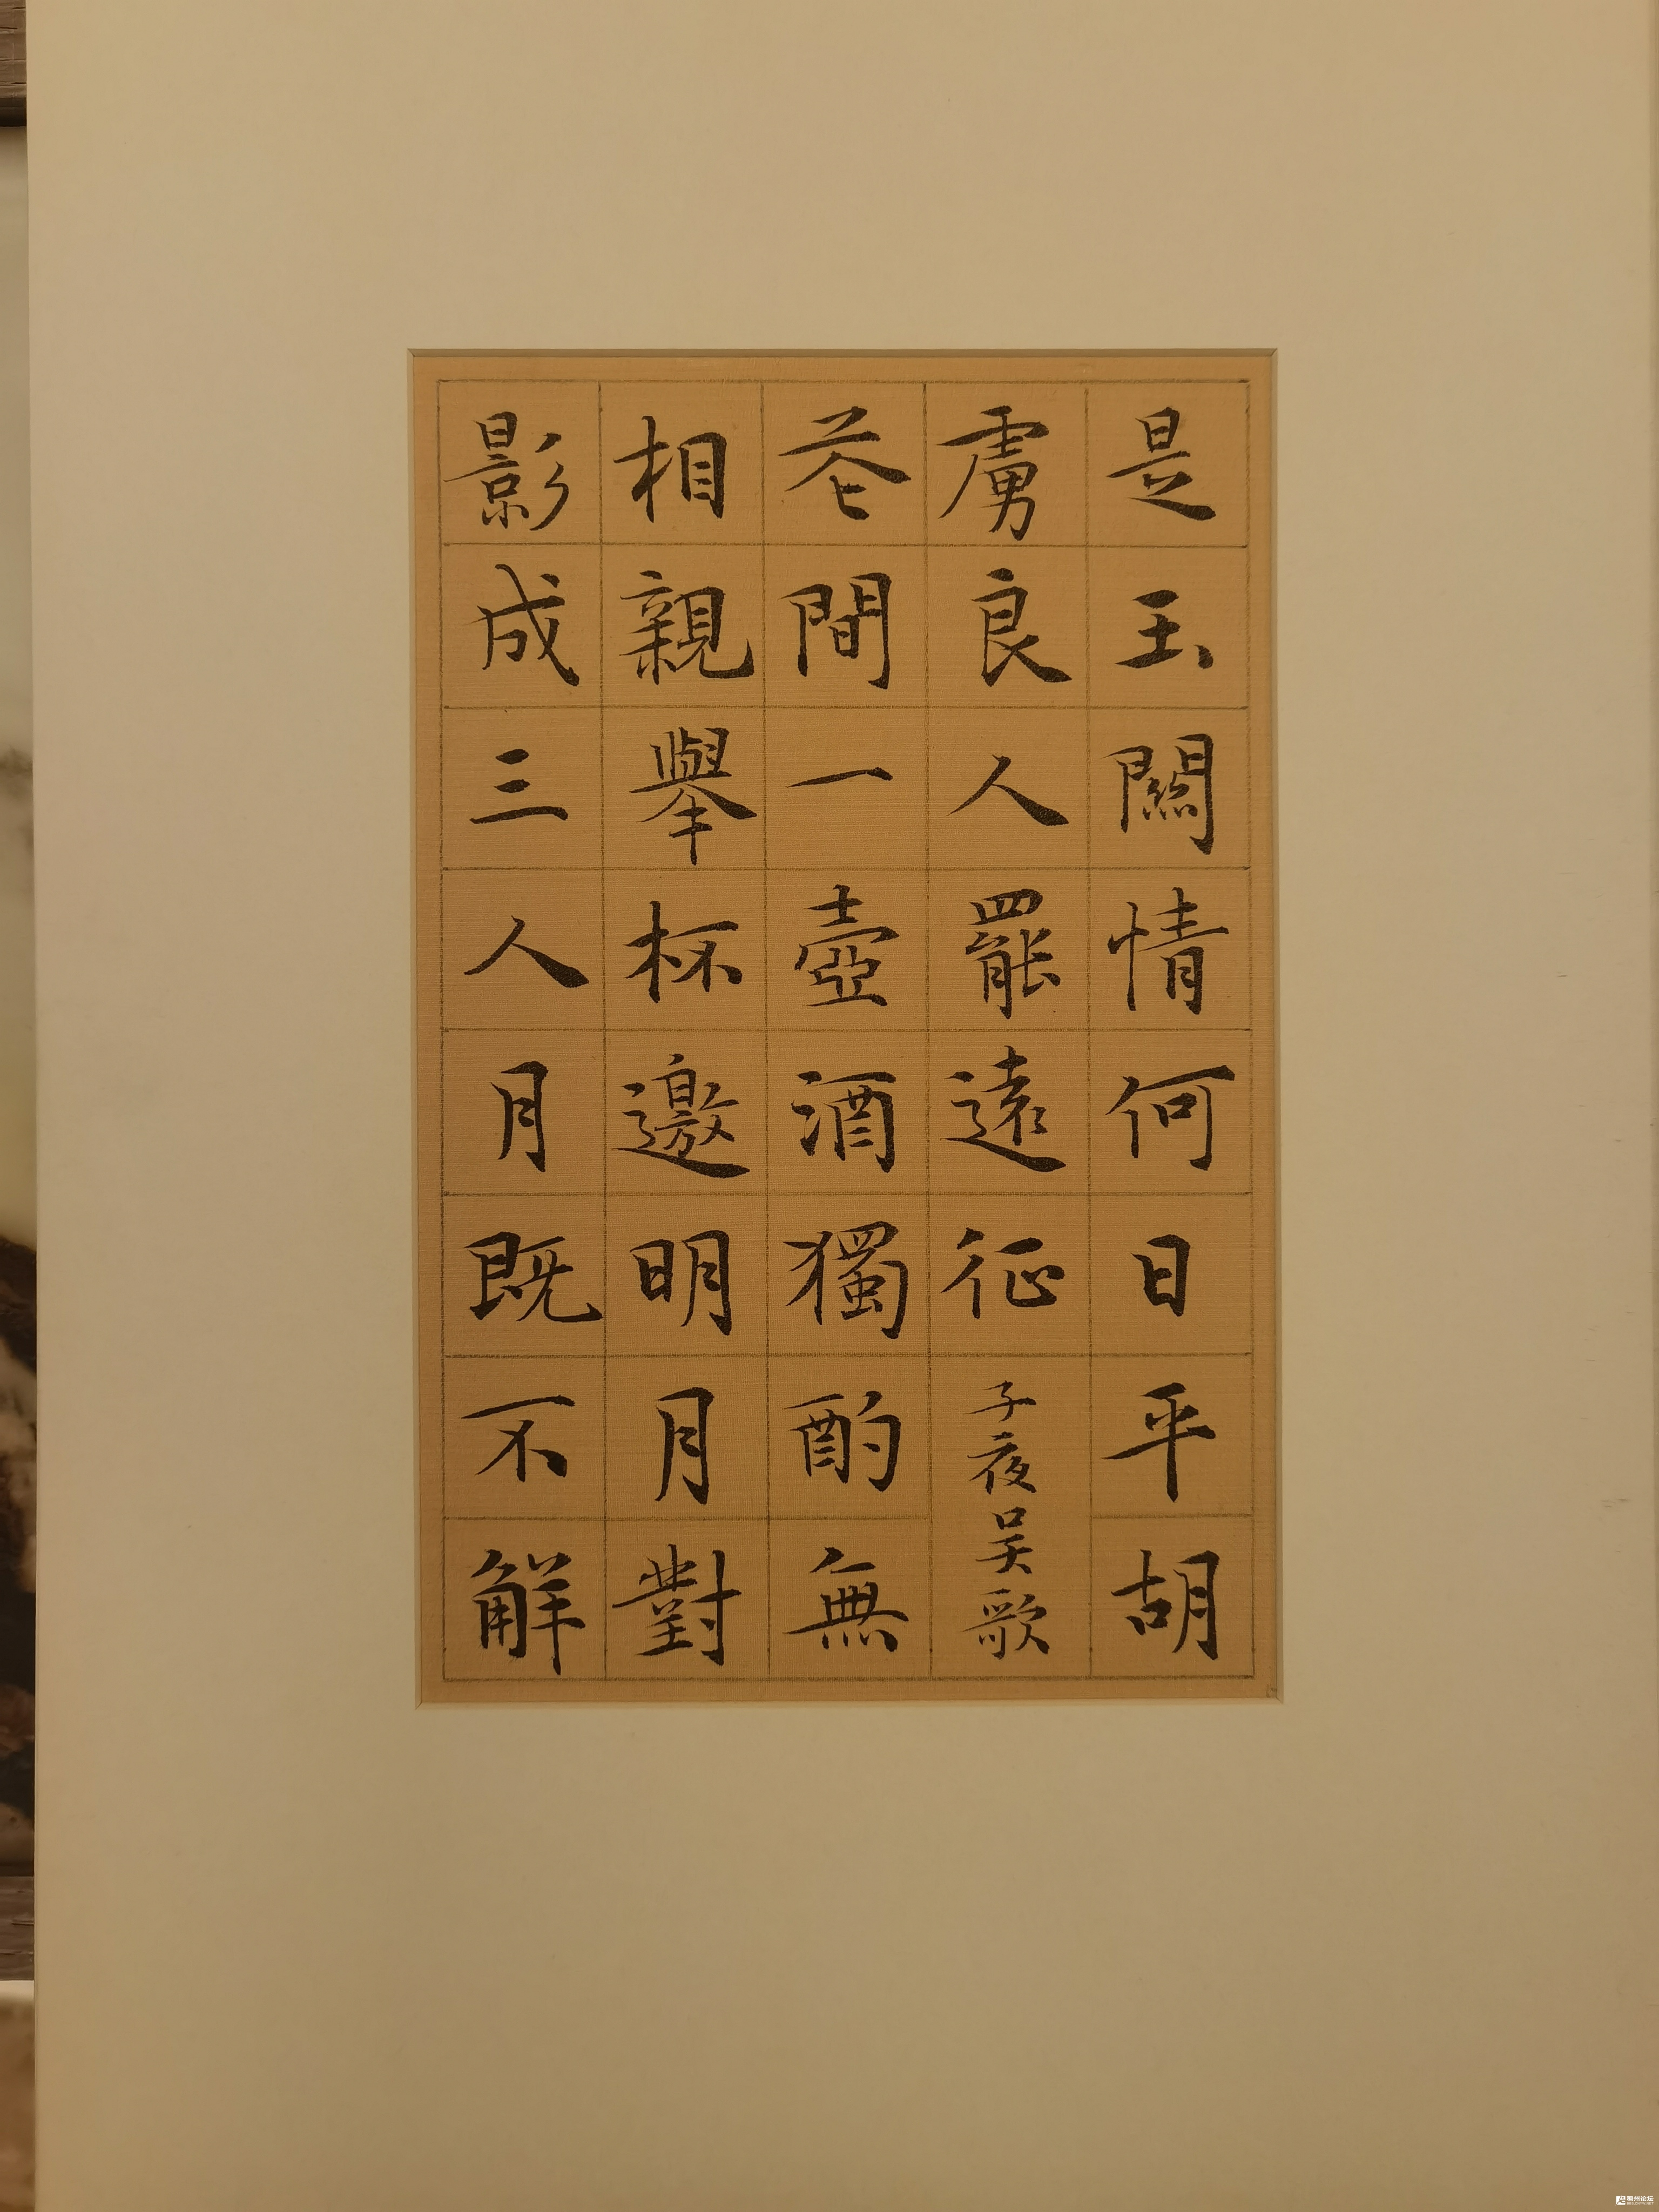 是玉關情何日平胡
虜良人罷遠征
子夜吴歌
花間一壺酒獨酌無
相親舉杯邀明月對
影成三人月既不解